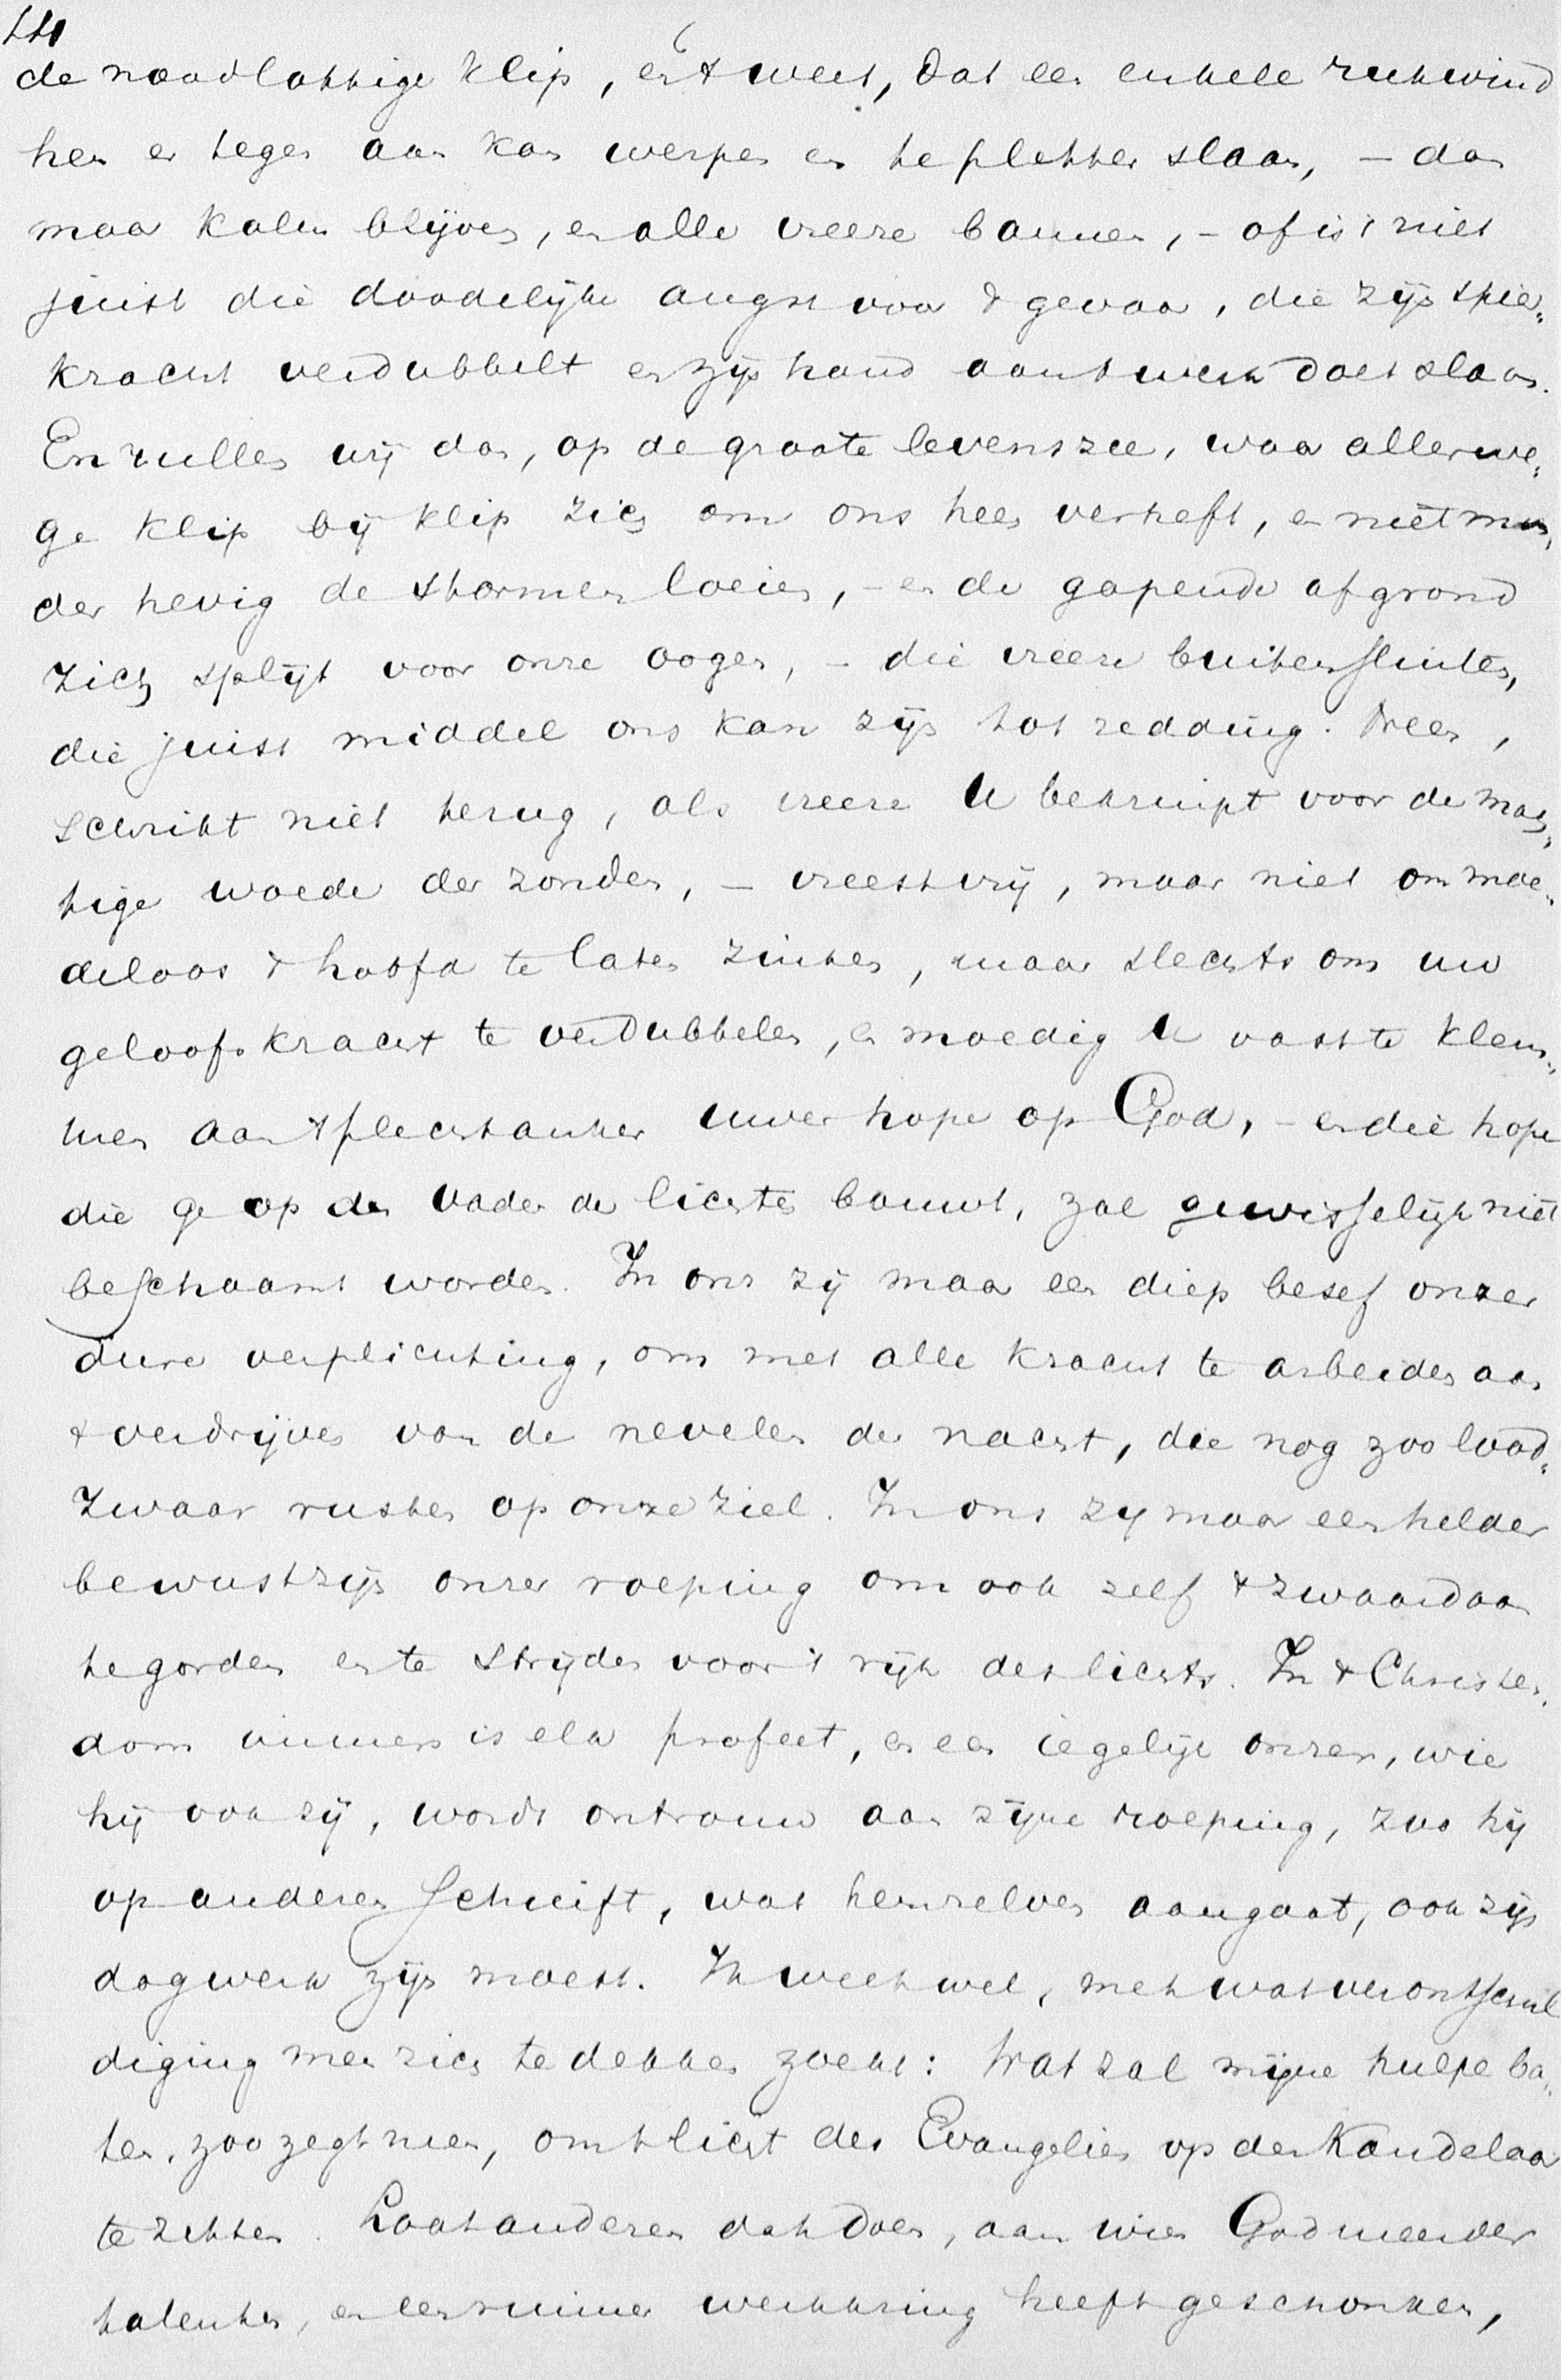 de noodlottige klip, en 't weet, dat een enkele rukwind
hen er tegen aan kan werpen en te pletter slaan, – dan
maar kalm blijven, en alle vreeze bannen, – of is 't niet
juist die doodelijke angst voor 't gevaar, die zijn spier„
kracht verdubbelt en zijn hand aan 't werk doet slaan.
En zullen wij dan, op de groote levenszee, waar allerwe„
ge klip bij klip zich om ons heen verheft, en niet min„
der hevig de stormen loeien, – en de gapende afgrond
zich splijt voor onze oogen, – die vreeze buitensluiten,
die juist middel ons kan zijn tot redding. Neen,
schrikt niet terug, als vreeze U bekruipt voor de mach„
tige woede der zonden, – vreest vrij, maar niet om moe„
deloos 't hoofd te laten zinken, maar slechts om uw
geloofskracht te verdubbelen, en moedig U vast te klem„
men aan 't plechtanker uwer hope op God, – en die hope
die ge op den Vader der lichten bouwt, zal gewisselijk niet
beschaamt worden. In ons zij maar een diep besef onzer
dure verplichting, om met alle kracht te arbeiden aan
't verdrijven van de nevelen der nacht, die nog zoo lood„
zwaar rusten op onze ziel. In ons zij maar een helder
bewustzijn onzer roeping om ook zelf 't zwaard aan
te gorden en te strijden voor 't rijk des lichts. In 't Christen„
dom immers is elk profeet, en een iegelijk onzer, wie
hij ook zij, wordt ontrouw aan zijne roeping, zoo hij
op anderen schuift, wat hemzelven aangaat, ook zijn
dagwerk zijn moest. Ik weet wel, met wat verontschul
diging men zich te dekken zoekt: Wat zal mijne hulpe ba„
ten, zoo zegt men, om 't licht des Evangelies op den Kandelaar
te zetten. Laat anderen dat doen, aan wien God meerder
talenten, en een ruimer werkkring heeft geschonken,